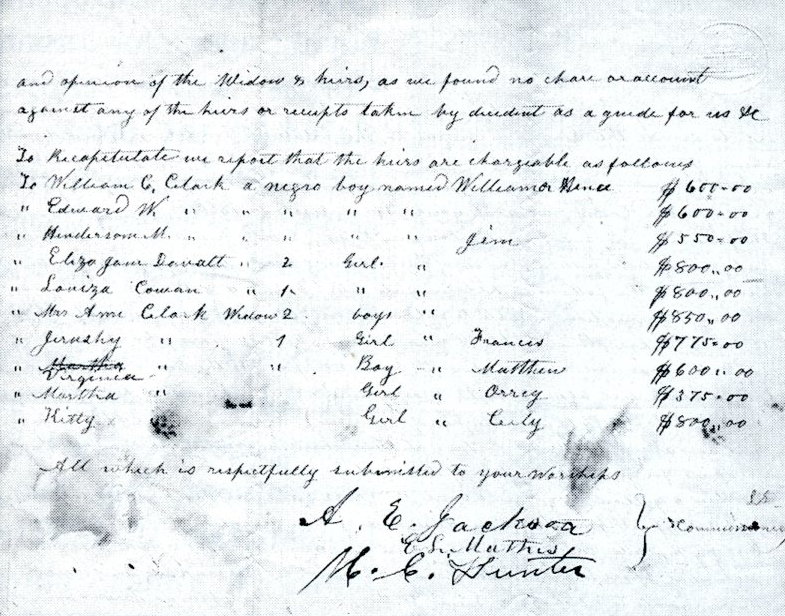 and opinion of the Widow & heirs, as we found no chare or account
against any of the heirs or receipts taken by decedent as a guide for us &c
To Recapetulate we report that the heirs are chargeable as follows
To William C. Clark a negro boy named William or $600.00
" Edward W. " " " " " $600.00
" Henderson M. " " " " " Jim $550.00
" Eliza Jane " 2 Girl " $800.00
" Louiza Cowan " 1 " " $800.00
" Mrs Ann Clark Widow 2 boys " $850.00
" Jerushy " 1 Girl " Francis $775.00
" Martha " " Boy " Matthew $600.00
Virginia
" Martha " Girl " Orrey $375.00
" Kitty Girl " Cely $800.00
All which is respectfully submitted to your Worships
A. E. Jackson
E. S. Mathis
M. C. Hunter